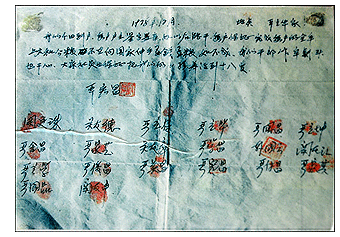 1978年12月 地点 严立华家
我们分田到户每户户主签字盖章如以后能干每户保证完成每户的全年
上交和公粮不在向国家伸手要钱要粮如不成我们干部作牢杀头
也干心大家社员也保证把我们的小孩养活到十八岁
严宏昌
关廷珠 关友德 严立符 严立华 严国昌 严立坤
严金昌 严家芝 关友章 严学昌 韩国云 关友江
严立学 严俊昌 严美昌
严国品 关友申